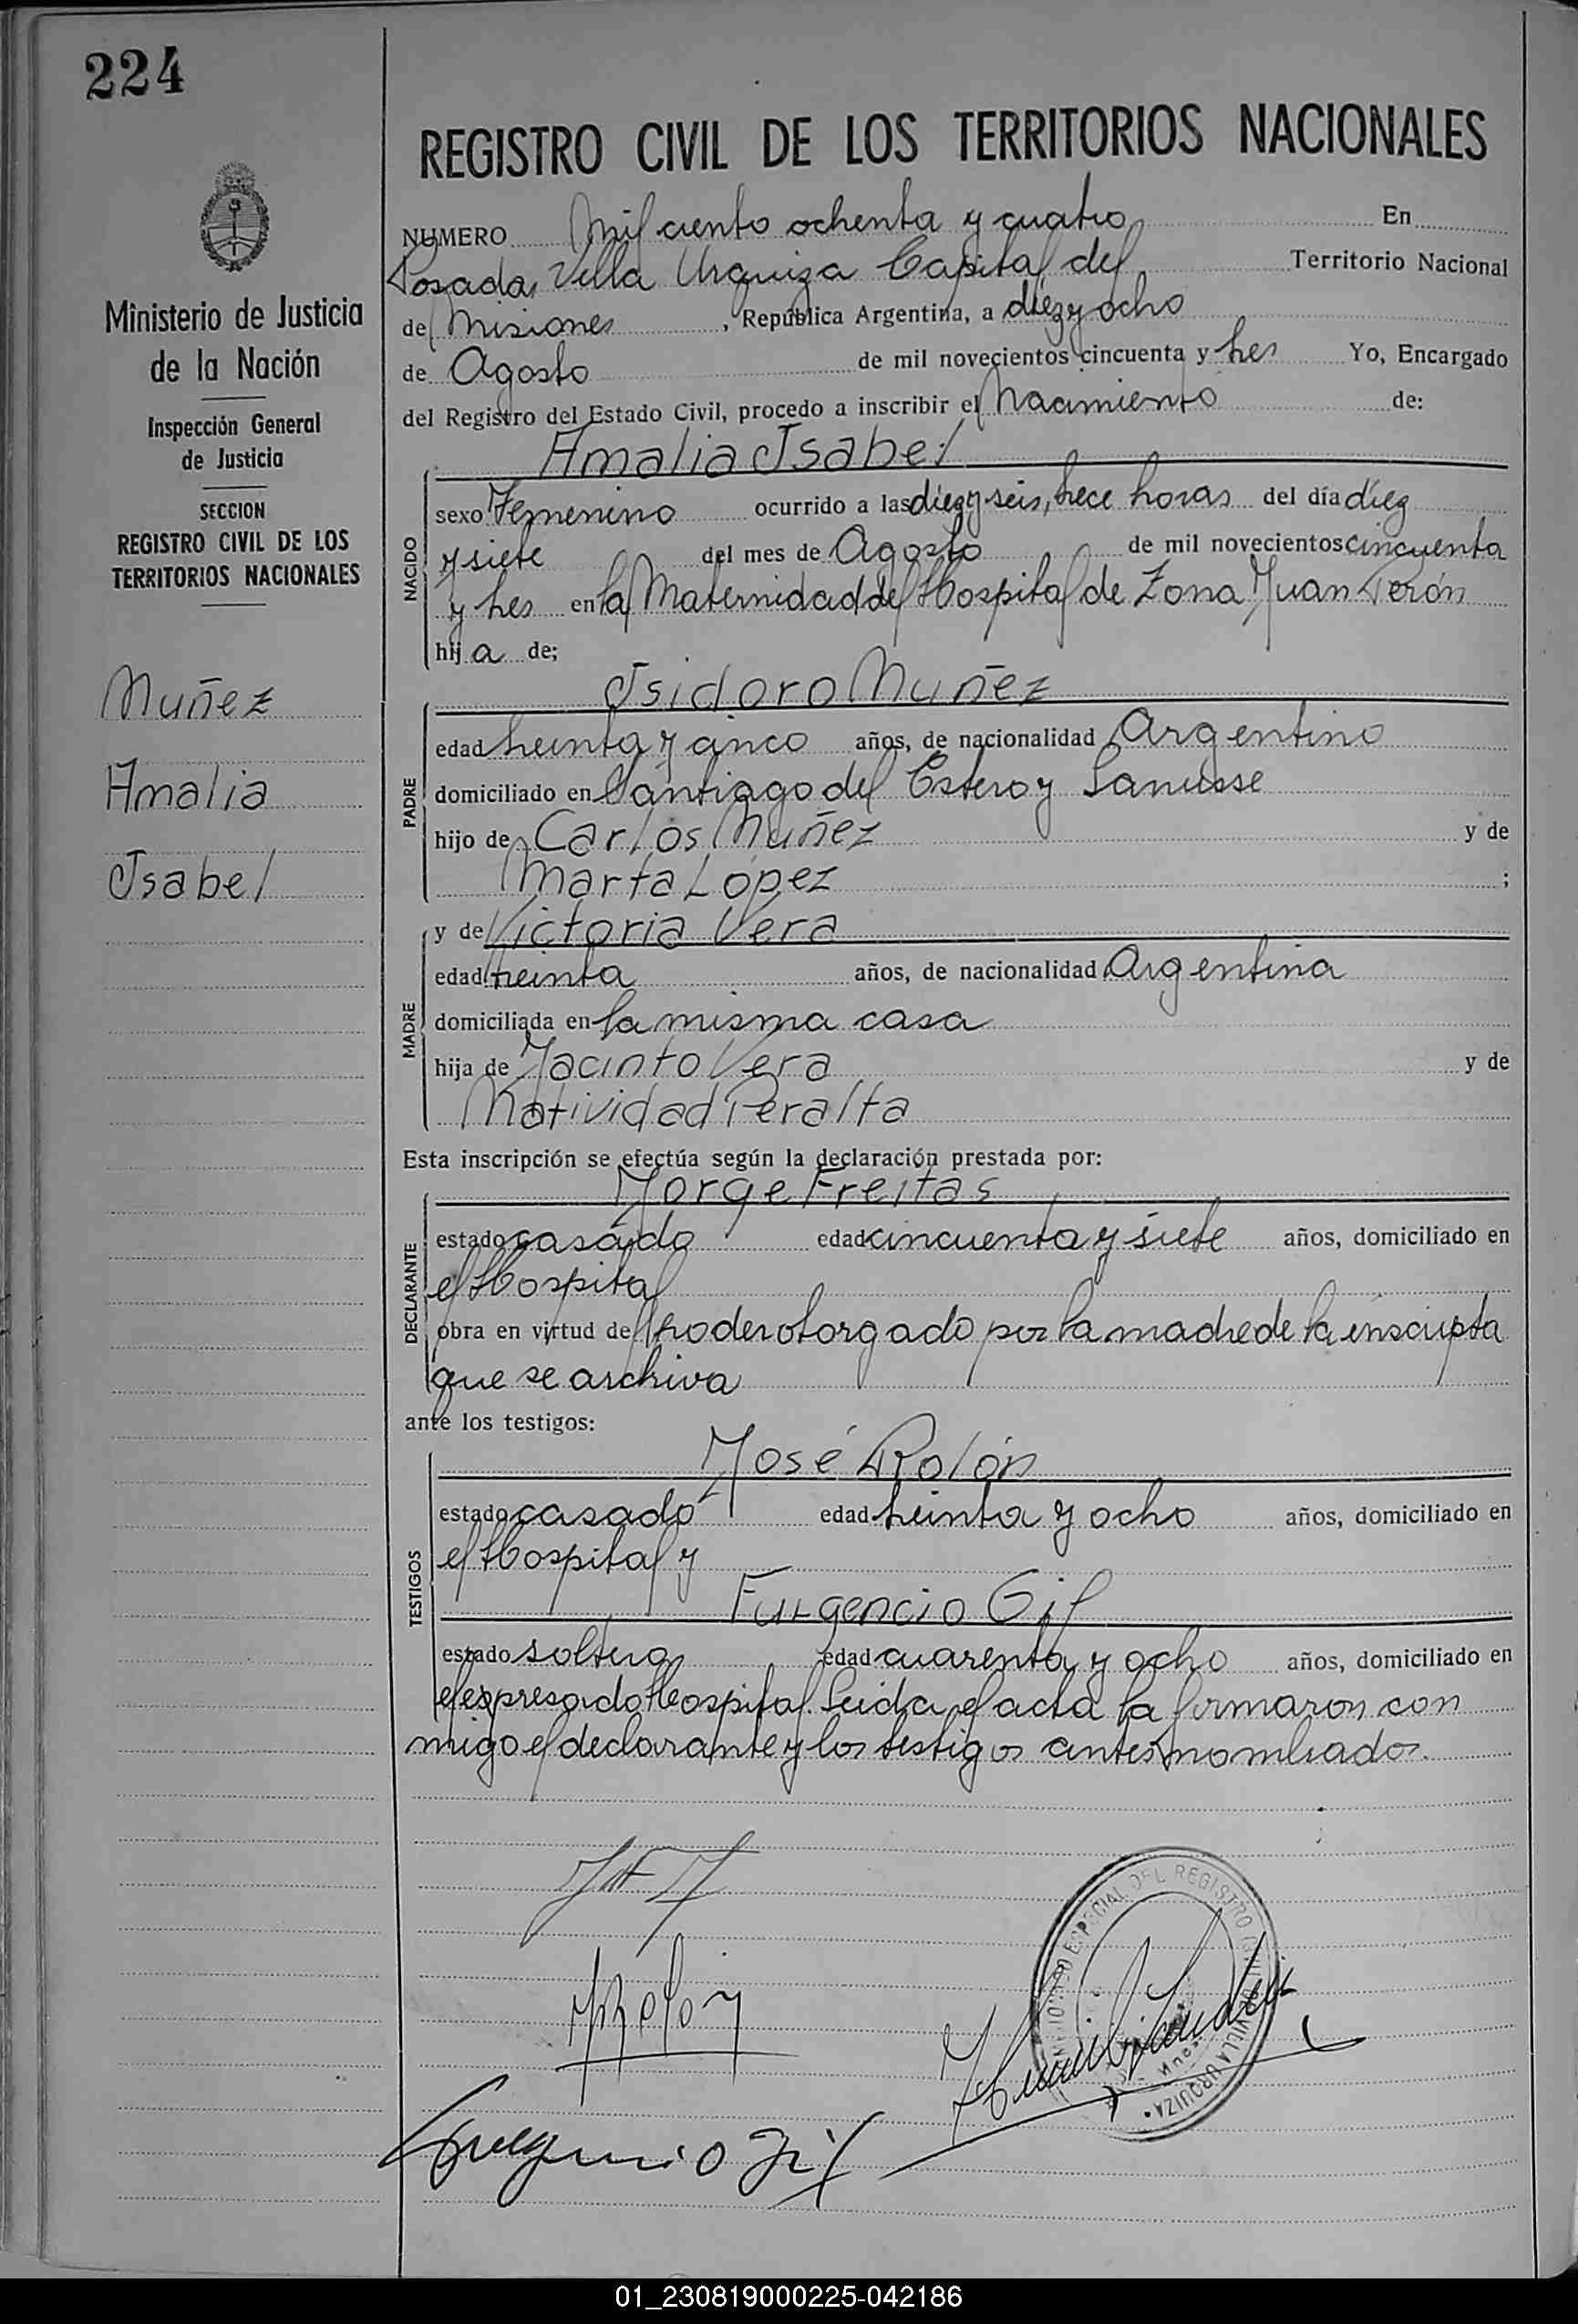 224
REGISTRO CIVIL DE LOS TERRITORIOS NACIONALES
Ministerio de Justicia
de la Nación
Inspección General
de Justicia
SECCION
REGISTRO CIVIL DE LOS
TERRITORIOS NACIONALES
Nuñez
Amalia
Isabel
NUMERO Mil ciento ochenta y cuatro En
Posadas Villa Urquiza Capital del Territorio Nacional
de Misiones, Republica Argentina, a diez y ocho
de Agosto de mil novecientos cincuenta y tres Yo, Encargado
del Registro del Estado Civil, procedo a inscribir el Nacimiento de:
Amalia Isabel
NACIDO
sexo Femenino ocurrido a las diez y seis, trece horas del día diez
y siete del mes de Agosto de mil novecientos cincuenta
y tres en la Maternidad del Hospital de Zona Juan Perón
hija de;
Isidoro Nuñez
PADRE
edad treinta y cinco años, de nacionalidad Argentino
domiciliado en Santiago del Estero y Lanusse
hijo de Carlos Nuñez y de
Marta López ;
y de Victoria Vera
MADRE
edad treinta años, de nacionalidad Argentina
domiciliada en la misma casa
hija de Jacinto Vera y de
Natividad Peralta
Esta inscripción se efectúa según la declaración prestada por:
Jorge Freitas
DECLARANTE
estado casado edad cincuenta y siete años, domiciliado en
el Hospital
obra en virtud del poder otorgado por la madre de la inscripta
que se archiva
ante los testigos:
José Rolón
TESTIGOS
estado casado edad treinta y ocho años, domiciliado en
el Hospital y
Fulgencio Gil
estado soltero edad cuarenta y ocho años, domiciliado en
el expresado Hospital. Leida el acta la firmaron con
migo el declarante y los testigos antes nombrados.
JRolon
Fulgencio Gil
ESPECIAL DEL REGISTRO CIVIL VILLA URQUIZA
01_230819000225-042186